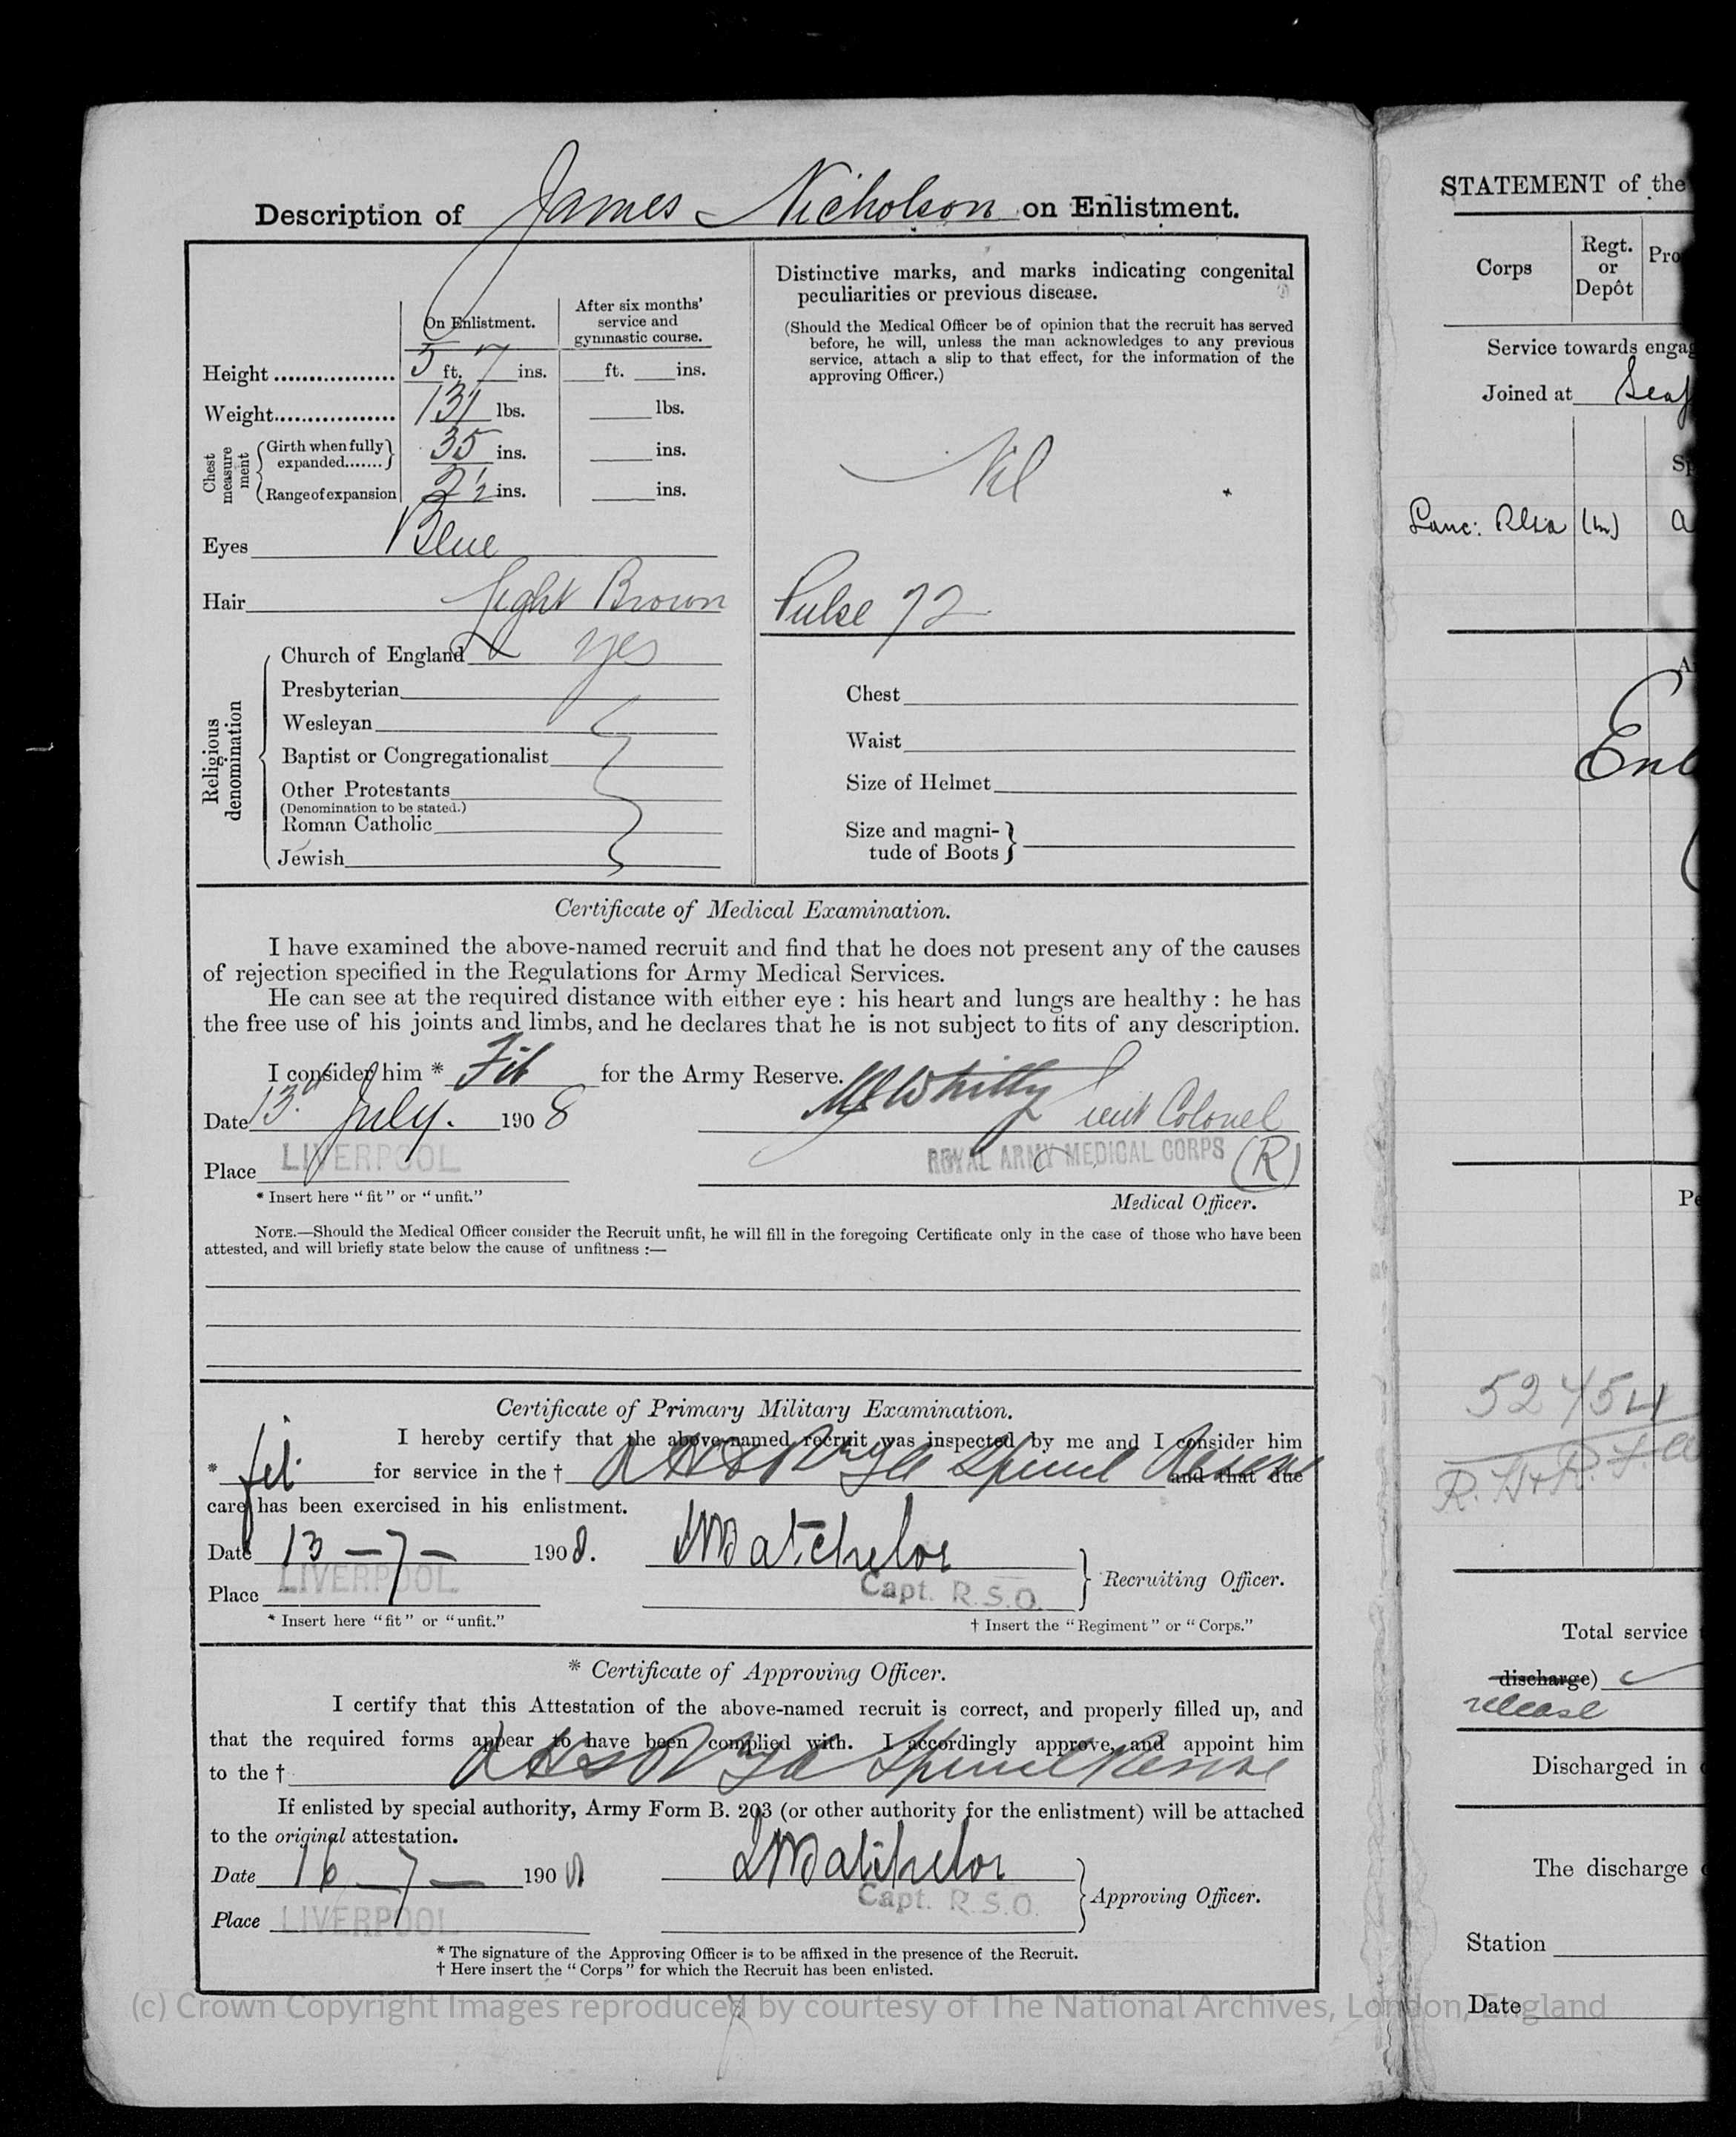 Description of James Nicholson on Enlistment.
On Enlistment.
After six months' service and gymnastic course.
Height 5 ft. 7 ins. ft. ins.
Weight 131 lbs. lbs.
Chest measurement
Girth when fully expanded 35 ins. ins.
Range of expansion 2½ ins. ins.
Eyes Blue
Hair Light Brown
Religious denomination
Church of England yes
Presbyterian
Wesleyan
Baptist or Congregationalist
Other Protestants
(Denomination to be stated.)
Roman Catholic
Jewish
Distinctive marks, and marks indicating congenital
peculiarities or previous disease.
(Should the Medical Officer be of opinion that the recruit has served
before, he will, unless the man acknowledges to any previous
service, attach a slip to that effect, for the information of the
approving Officer.)
Nil
Pulse 72
Chest
Waist
Size of Helmet
Size and magni-
tude of Boots
Certificate of Medical Examination.
I have examined the above-named recruit and find that he does not present any of the causes
of rejection specified in the Regulations for Army Medical Services.
He can see at the required distance with either eye : his heart and lungs are healthy : he has
the free use of his joints and limbs, and he declares that he is not subject to fits of any description.
I consider him * Fit for the Army Reserve.
Whitty Lieut Colonel
Date 13 July. 1908
ROYAL ARMY MEDICAL CORPS (R)
Place LIVERPOOL
* Insert here "fit" or "unfit."
Medical Officer.
NOTE.—Should the Medical Officer consider the Recruit unfit, he will fill in the foregoing Certificate only in the case of those who have been
attested, and will briefly state below the cause of unfitness :—
Certificate of Primary Military Examination.
I hereby certify that the above-named recruit was inspected by me and I consider him
* fit for service in the † Special Reserve and that due
care has been exercised in his enlistment.
Date 13-7- 1908. Batchelor
Place LIVERPOOL Capt. R.S.O. Recruiting Officer.
* Insert here "fit" or "unfit."
† Insert the "Regiment" or "Corps."
* Certificate of Approving Officer.
I certify that this Attestation of the above-named recruit is correct, and properly filled up, and
that the required forms appear to have been complied with. I accordingly approve, and appoint him
to the † Special Reserve
If enlisted by special authority, Army Form B. 203 (or other authority for the enlistment) will be attached
to the original attestation.
Date 16-7- 1908 Batchelor
Capt. R.S.O. Approving Officer.
Place LIVERPOOL
* The signature of the Approving Officer is to be affixed in the presence of the Recruit.
† Here insert the "Corps" for which the Recruit has been enlisted.
STATEMENT of the
Corps
Regt. or Depôt
Pro
Service towards engag
Joined at Seaf
Lanc: (m) a
Enl
Pe
52454
Total service
discharge)
release
Discharged in
The discharge
Station
Date
(c) Crown Copyright Images reproduced by courtesy of The National Archives, London, England